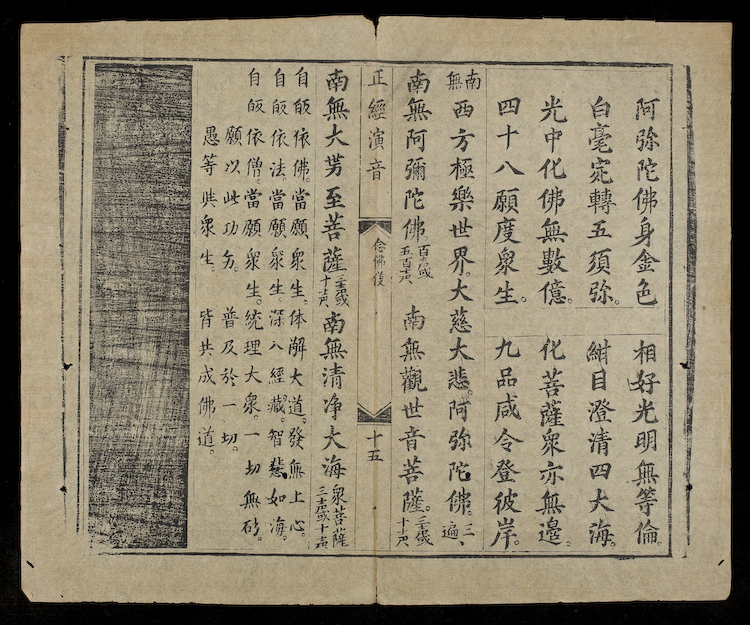 阿弥陀佛身金色　相好光明無等倫。
白毫宛轉五須弥。紺目澄清四大海。
光中化佛無數億。化菩薩衆亦無邊。
四十八願度衆生。九品咸令登彼岸。
南無西方極樂世界。大慈大悲。阿弥陀佛。三遍
南無阿彌陀佛百声或五百声　南無觀世音菩薩。三声或十声
正經演音　念佛儀　十五
南無大势至菩薩三声或十声　南無清净大海衆菩薩三声或十声
自皈依佛。當願衆生。体解大道。發無上心。
自皈依法。當願衆生。深入經藏。智慧如海。
自皈依僧。當願衆生。統理大衆。一切無碍。
願以此功　。　普及於一切。
愚等與衆生。　皆共成佛道。